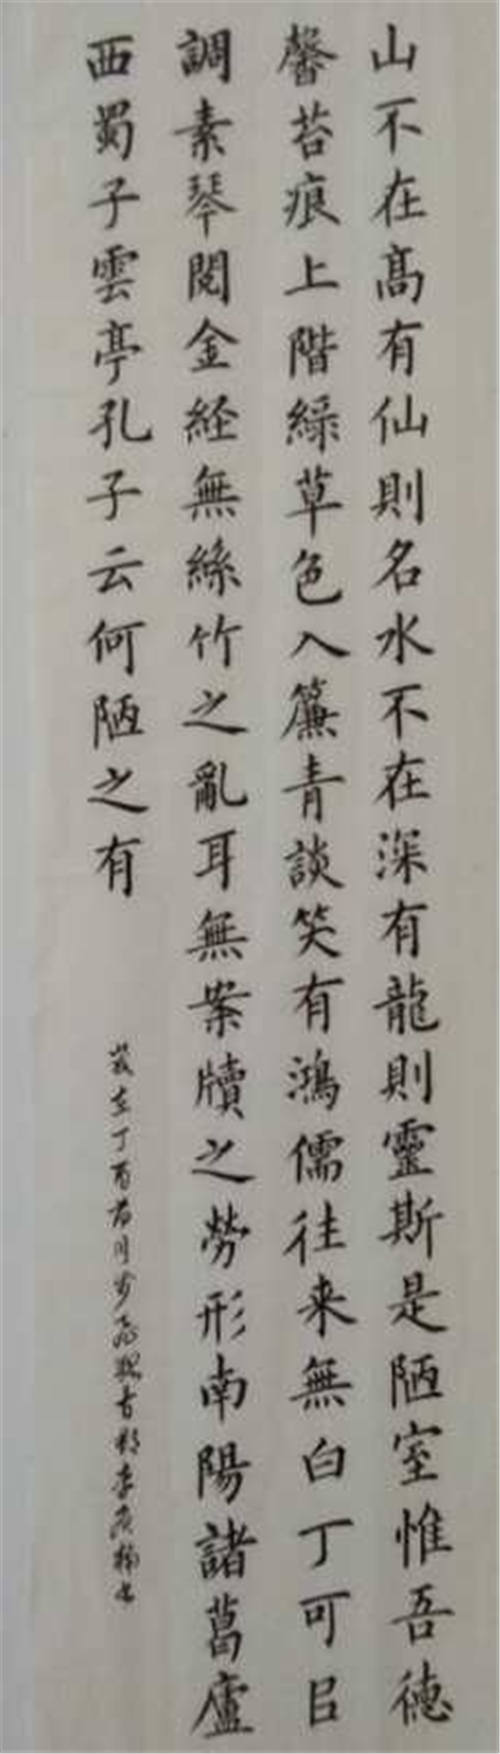 山不在髙有仙則名水不在深有龍則靈斯是陋室惟吾德
馨苔痕上階綠草色入簾青談笑有鴻儒往来無白丁可㠯
調素琴閱金経無絲竹之亂耳無案牘之勞形南陽諸葛廬
西蜀子雲亭孔子云何陋之有
歲在丁酉